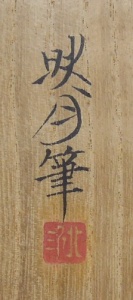 映月筆